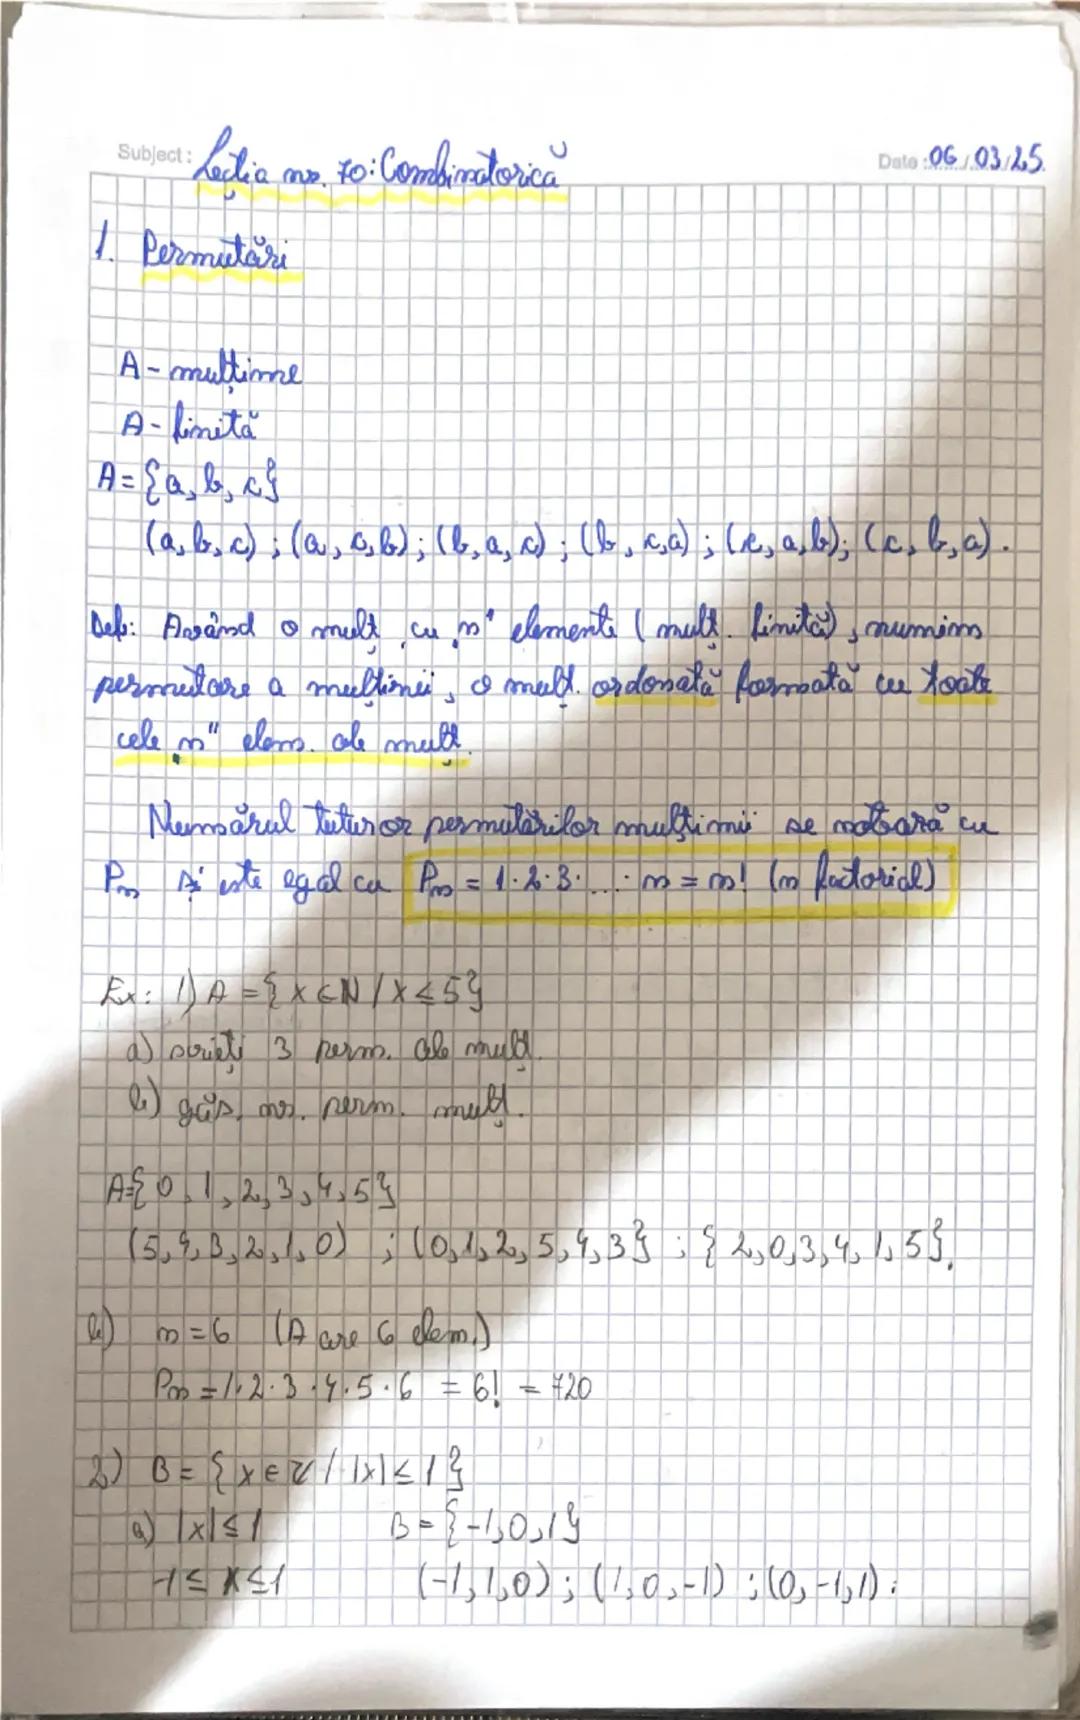 Subject: Lecția nr. 70: Combinatorică
Date: 06/03/25.
1. Permutări
A - mulțime
A - finită
A = {a, b, c}
(a, b, c) ; (a, c, b) ; (b, a, c) ; (b, c, a) ; (c, a, b) ; (c, b, a) .
Def: Având o mulț. cu n" elemente (mulț. finită), numim
permutare a mulțimii, o mulț. ordonată formată cu toate
cele n" elem. ale mulț.
Numărul tuturor permutărilor mulțimii se notează cu
Pn și este egal cu Pn = 1·2·3· ... · n = n! (n factorial)
Ex: 1) A = {x ∈ N / x ≤ 5}
a) scrieți 3 perm. ale mulț.
b) găs. nr. perm. mulț.
A={0, 1, 2, 3, 4, 5}
(5, 4, 3, 2, 1, 0) ; (0, 1, 2, 5, 4, 3} ; {2, 0, 3, 4, 1, 5}.
b) n = 6 (A are 6 elem.)
Pn = 1·2·3·4·5·6 = 6! = 720
2) B = {x ∈ Z / |x| ≤ 1}
a) |x| ≤ 1 B = {-1, 0, 1}
-1 ≤ x ≤ 1 (-1, 1, 0) ; (1, 0, -1) ; (0, -1, 1) .